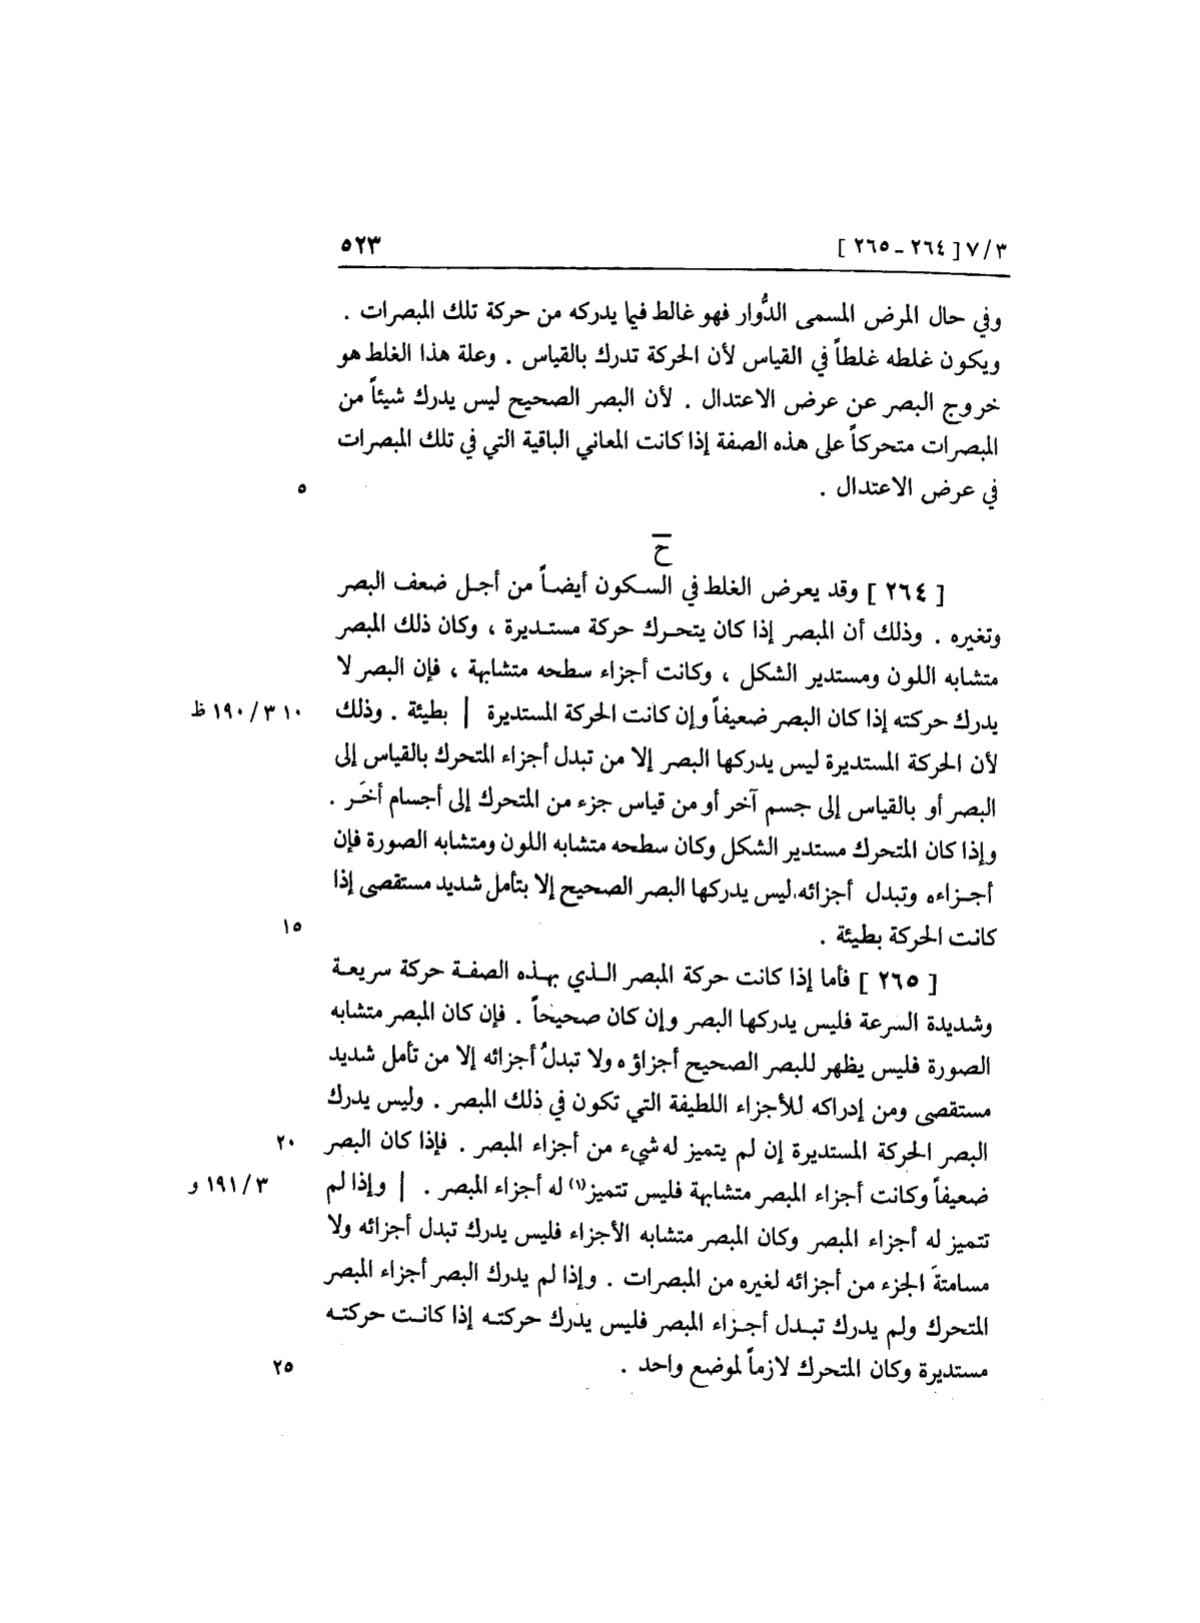 ٣/٧ [ ٢٦٤ ـ ٢٦٥ ] ٥٢٣
وفي حال المرض المسمى الدُّوار فهو غالط فيما يدركه من حركة تلك المبصرات .
ويكون غلطه غلطاً في القياس لأن الحركة تدرك بالقياس . وعلة هذا الغلط هو
خروج البصر عن عرض الاعتدال . لأن البصر الصحيح ليس يدرك شيئاً من
المبصرات متحركاً على هذه الصفة إذا كانت المعاني الباقية التي في تلك المبصرات
في عرض الاعتدال . ٥
ح
[ ٢٦٤ ] وقد يعرض الغلط في السكون أيضاً من أجل ضعف البصر
وتغيره . وذلك أن المبصر إذا كان يتحرك حركة مستديرة ، وكان ذلك المبصر
متشابه اللون ومستدير الشكل ، وكانت أجزاء سطحه متشابهة ، فإن البصر لا
يدرك حركته إذا كان البصر ضعيفاً وإن كانت الحركة المستديرة | بطيئة . وذلك ١٠ ٣/١٩٠ ظ
لأن الحركة المستديرة ليس يدركها البصر إلا من تبدل أجزاء المتحرك بالقياس إلى
البصر أو بالقياس إلى جسم آخر أو من قياس جزء من المتحرك إلى أجسام أخَر .
وإذا كان المتحرك مستدير الشكل وكان سطحه متشابه اللون ومتشابه الصورة فإن
أجزاءه وتبدل أجزائه ليس يدركها البصر الصحيح إلا بتأمل شديد مستقصى إذا
كانت الحركة بطيئة . ١٥
[ ٢٦٥ ] فأما إذا كانت حركة المبصر الذي بهذه الصفة حركة سريعة
وشديدة السرعة فليس يدركها البصر وإن كان صحيحاً . فإن كان المبصر متشابه
الصورة فليس يظهر للبصر الصحيح أجزاؤه ولا تبدلُ أجزائه إلا من تأمل شديد
مستقصى ومن إدراكه للأجزاء اللطيفة التي تكون في ذلك المبصر . وليس يدرك
البصر الحركة المستديرة إن لم يتميز له شيء من أجزاء المبصر . فإذا كان البصر ٢٠
ضعيفاً وكانت أجزاء المبصر متشابهة فليس تتميز(١) له أجزاء المبصر . | وإذا لم ٣/١٩١ و
تتميز له أجزاء المبصر وكان المبصر متشابه الأجزاء فليس يدرك تبدل أجزائه ولا
مسامتةَ الجزء من أجزائه لغيره من المبصرات . وإذا لم يدرك البصر أجزاء المبصر
المتحرك ولم يدرك تبدل أجزاء المبصر فليس يدرك حركته إذا كانت حركته
مستديرة وكان المتحرك لازماً لموضع واحد . ٢٥